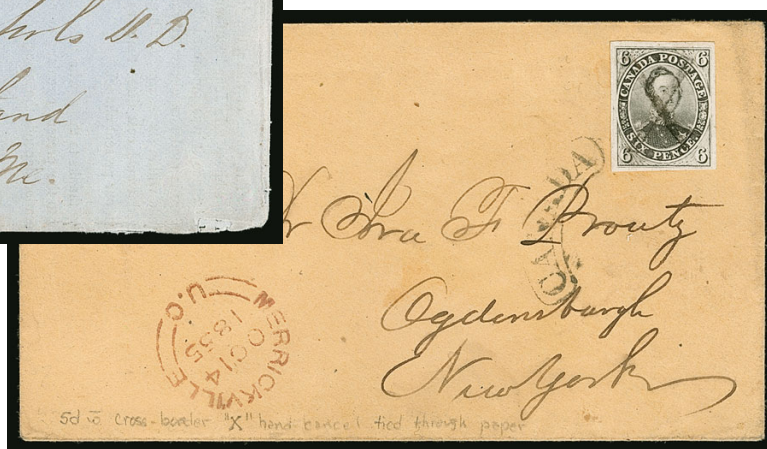 D.D.
Me.
6 CANADA POSTAGE 6
6 SIX PENCE 6
CANADA
Mr Ira F Prouty
Ogdensburgh
New York
MERRICKVILLE U.C.
OC 14
1855
cross-border "X" hand-cancel tied through paper